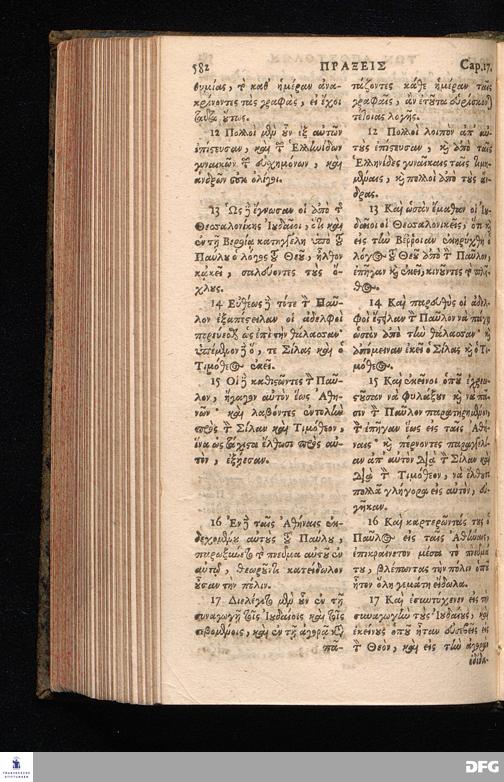 582 ΠΡΑΞΕΙΣ Cap.17.
θυμίας, τὸ καθ' ἡμέραν ἀνα-
κρίνοντες τὰς γραφὰς, εἰ ἔχοι
ταῦτα οὕτως.
12 Πολλοὶ μὲν οὖν ἐξ αὐτῶν
ἐπίστευσαν, καὶ τῶν Ἑλληνίδων
γυναικῶν τῶν εὐσχημόνων, καὶ
ἀνδρῶν οὐκ ὀλίγοι.
13 Ὡς δὲ ἔγνωσαν οἱ ἀπὸ τῆς
Θεσσαλονίκης Ἰουδαῖοι, ὅτι καὶ
ἐν τῇ Βεροίᾳ κατηγγέλη ὑπὸ τοῦ
Παύλου ὁ λόγος τοῦ Θεοῦ, ἦλθον
κἀκεῖ, σαλεύοντες τοὺς ὄ-
χλους.
14 Εὐθέως δὲ τότε τὸν Παῦ-
λον ἐξαπέστειλαν οἱ ἀδελφοὶ
πορεύεσθαι ὡς ἐπὶ τὴν θάλασσαν·
ὑπέμενον δὲ ὅ, τε Σίλας καὶ ὁ
Τιμόθεος ἐκεῖ.
15 Οἱ δὲ καθιστῶντες τὸν Παῦ-
λον, ἤγαγον αὐτὸν ἕως Ἀθη-
νῶν· καὶ λαβόντες ἐντολὴν
πρὸς τὸν Σίλαν καὶ Τιμόθεον,
ἵνα ὡς τάχιστα ἔλθωσι πρὸς αὐ-
τὸν, ἐξῄεσαν.
16 Ἐν δὲ ταῖς Ἀθήναις ἐκ-
δεχομένου αὐτοὺς τοῦ Παύλου,
παρωξύνετο τὸ πνεῦμα αὐτοῦ ἐν
αὐτῷ, θεωροῦντι κατείδωλον
οὖσαν τὴν πόλιν.
17 Διελέγετο μὲν οὖν ἐν τῇ
συναγωγῇ τοῖς Ἰουδαίοις καὶ τοῖς
σεβομένοις, καὶ ἐν τῇ ἀγορᾷ κατὰ
πᾶ-
τάζοντες κάθε ἡμέραν ταῖς
γραφαῖς, ἂν ἐτοῦτα εὑρίσκων
τέτοιας λογῆς.
12 Πολλοὶ λοιπὸν ἀπ' αὐ-
τοὺς ἐπίστευσαν, καὶ ἀπὸ ταῖς
Ἑλληνίδες γυναῖκαις ταῖς τιμη-
μέναις, καὶ πολλοὶ ἀπὸ τοὺς ἄν-
δρας.
13 Καὶ ὡσὰν ἔμαθαν οἱ Ἰου-
δαῖοι οἱ Θεσσαλονικεῖς, ὅτι καὶ
εἰς τὴν Βέρροιαν ἐκηρύχθη ὁ
λόγος τοῦ Θεοῦ ἀπὸ τὸν Παῦλον,
ἐπῆγαν καὶ ἐκεῖ, κινῶντες τὰ πλή-
θος.
14 Καὶ παρευθὺς οἱ ἀδελ-
φοὶ ἔστειλαν τὸν Παῦλον νὰ πάγῃ
ὡσὰν ἀπὸ τὴν θάλασσαν· καὶ
ἀπόμειναν ἐκεῖ ὁ Σίλας καὶ ὁ Τι-
μόθεος.
15 Καὶ ἐκεῖνοι ὁποῦ
νὰ φυλάξουν καὶ νὰ
τὸν Παῦλον
τὸν ἐπῆγαν ἕως εἰς ταῖς Ἀθή-
ναις· καὶ πέρνοντες παραγγελί-
αν ἀπ' αὐτὸν διὰ τὸν Σίλαν καὶ
διὰ τὸν Τιμόθεον, νὰ ἔλθουν
πολλὰ γλήγορα εἰς αὐτὸν, εὐ-
γῆκαν.
16 Καὶ καρτερῶντας τους ὁ
Παῦλος εἰς ταῖς Ἀθήναις,
ἐπικραίνετον μέσα τὸ πνεῦμά
του, βλέπωντας τὴν πόλιν ὁποῦ
ἦτον ὅλη γεμάτη εἴδωλα.
17 Καὶ ἐσυντύχενεν εἰς τὴν
συναγωγὴν τοὺς Ἰουδαίους, καὶ
ἐκείνους ὁποῦ ἦταν εὐσεβεῖς εἰς
τὸν Θεὸν, καὶ εἰς τὴν ἀγορὰν